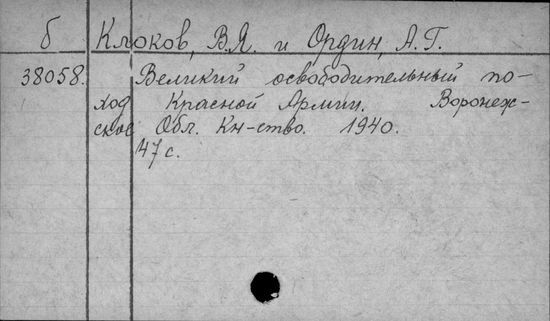 б Клоков, В.Я. и Ордин, А.Г.
38058. Великий освободительный по-
ход Красной Армии. Воронеж-
ское Обл. Кн-ство. 1940.
47 с.